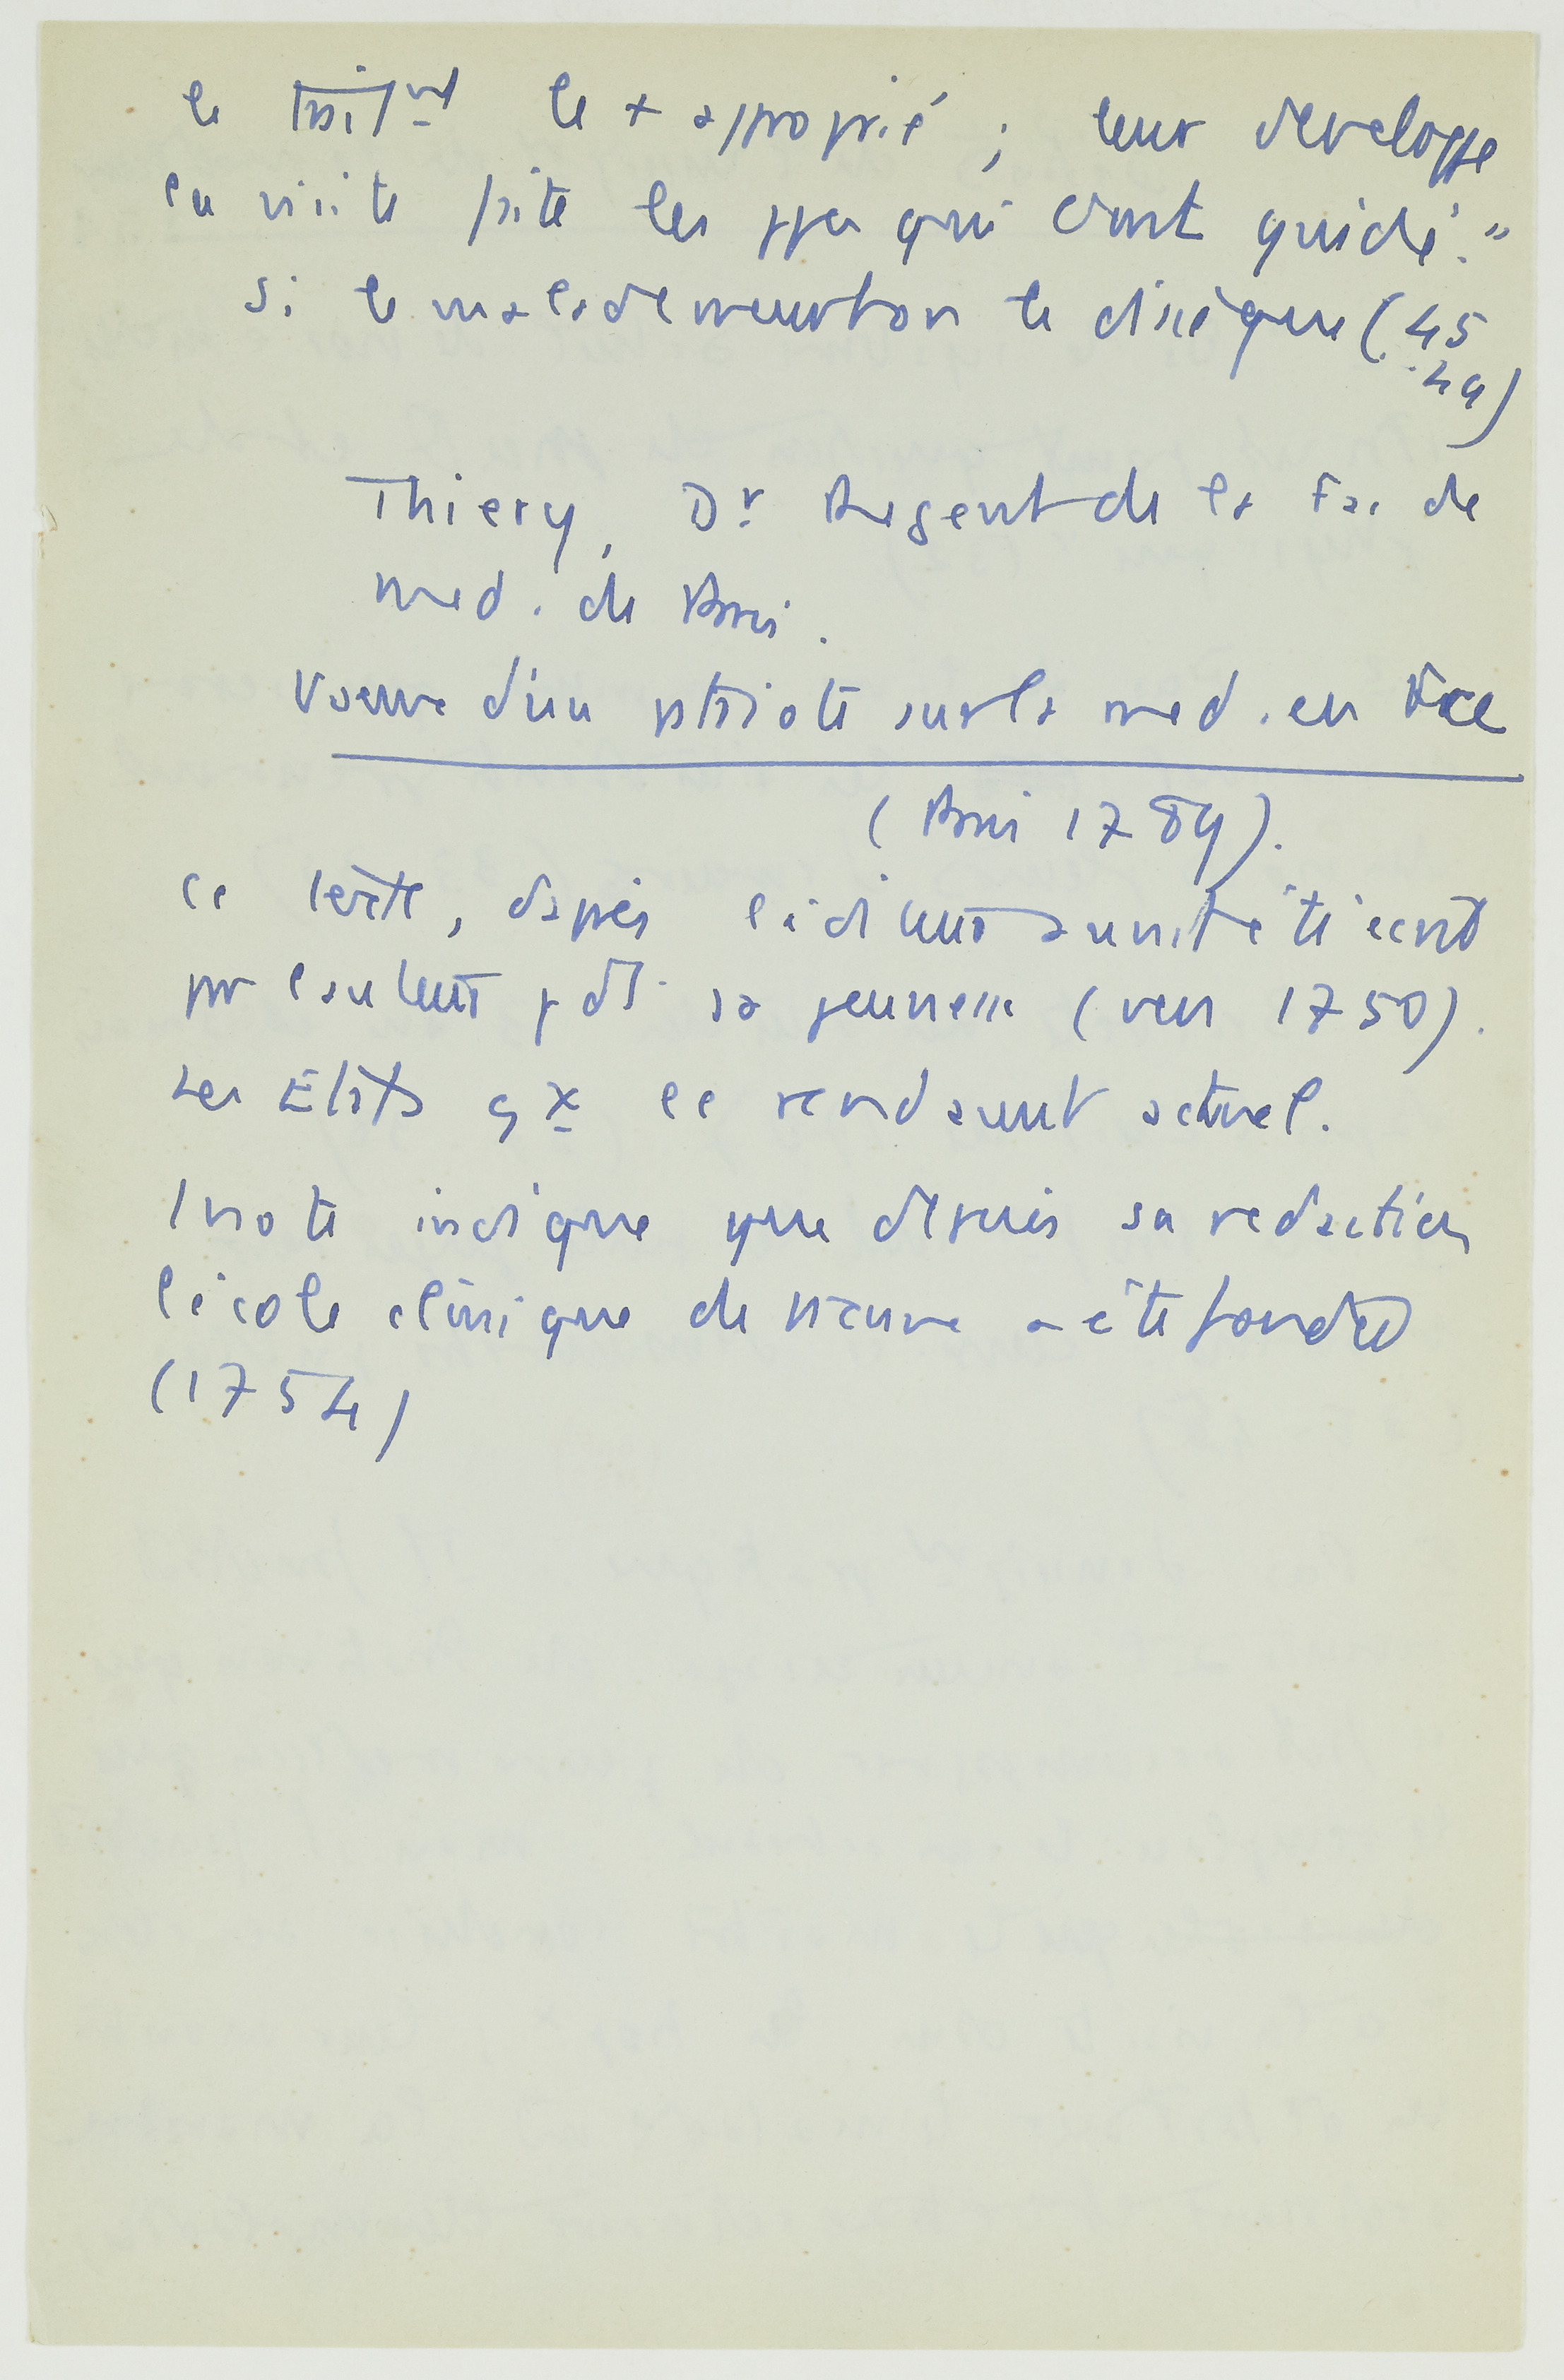 le trait^mt le + approprié ; leur developpe
la visite faite les ppes qui l'ont guidé."
Si le malade meurt on le dissèque (45
.49)
Thiery, Dr Regent de la Fac de
med. de Paris.
Voeux d'un patriote sur la med. en Fce
(Paris 1789).
Ce texte, d'après l'éditeur aurait été écrit
par l'auteur pdt sa jeunesse (vers 1750).
Les Etats gx le rendaient actuel.
1 note indique que depuis sa redaction
l'école clinique de Vienne a été fondée
(1754)